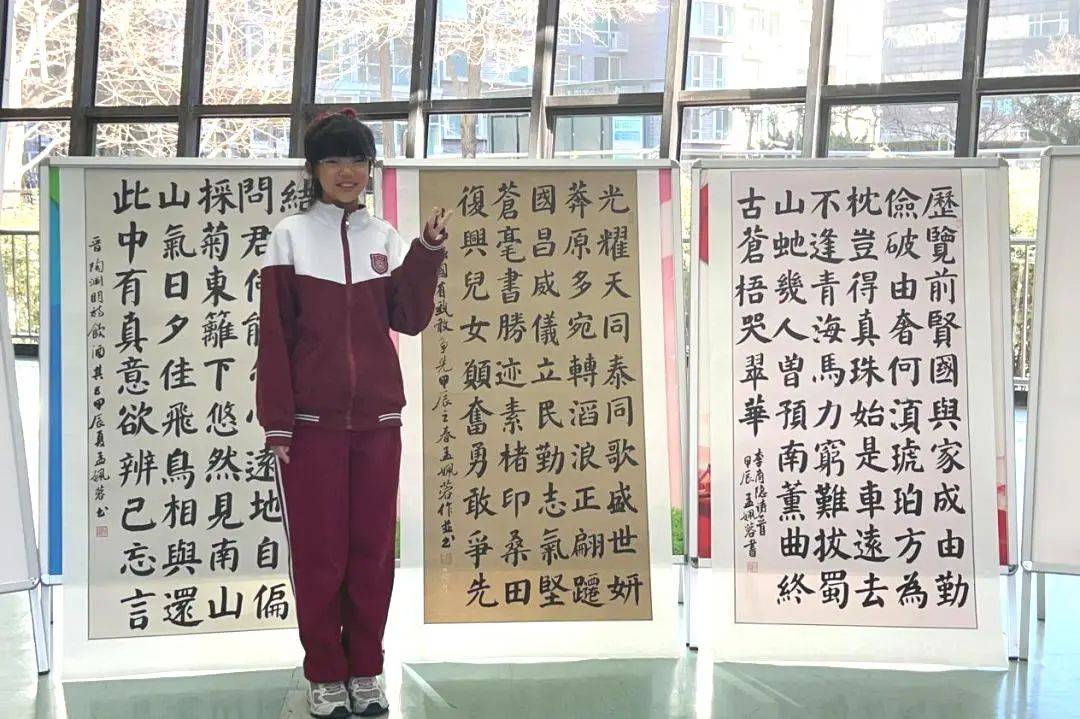 結
問君何能心遠地自偏
採菊東籬下悠然見南山
山氣日夕佳飛鳥相與還
此中有真意欲辨己忘言
晉陶淵明詩飲酒其五甲辰夏孟姵蓉书
光耀天同泰同歌盛世妍
莽原多宛轉滔浪正翩躚
國昌威儀立民勤志氣堅
蒼毫書勝迹素楮印桑田
復興兒女顛奮勇敢爭先
國有武敢争先甲辰立春孟姵蓉作並书
歷覽前賢國與家成由勤
儉破由奢何湏琥珀方為
枕豈得真珠始是車遠去
不逢青海馬力窮難拔蜀
山虵幾人曽預南薰曲終
古蒼梧哭翠華
李商隱詩一首
甲辰 孟姵蓉書